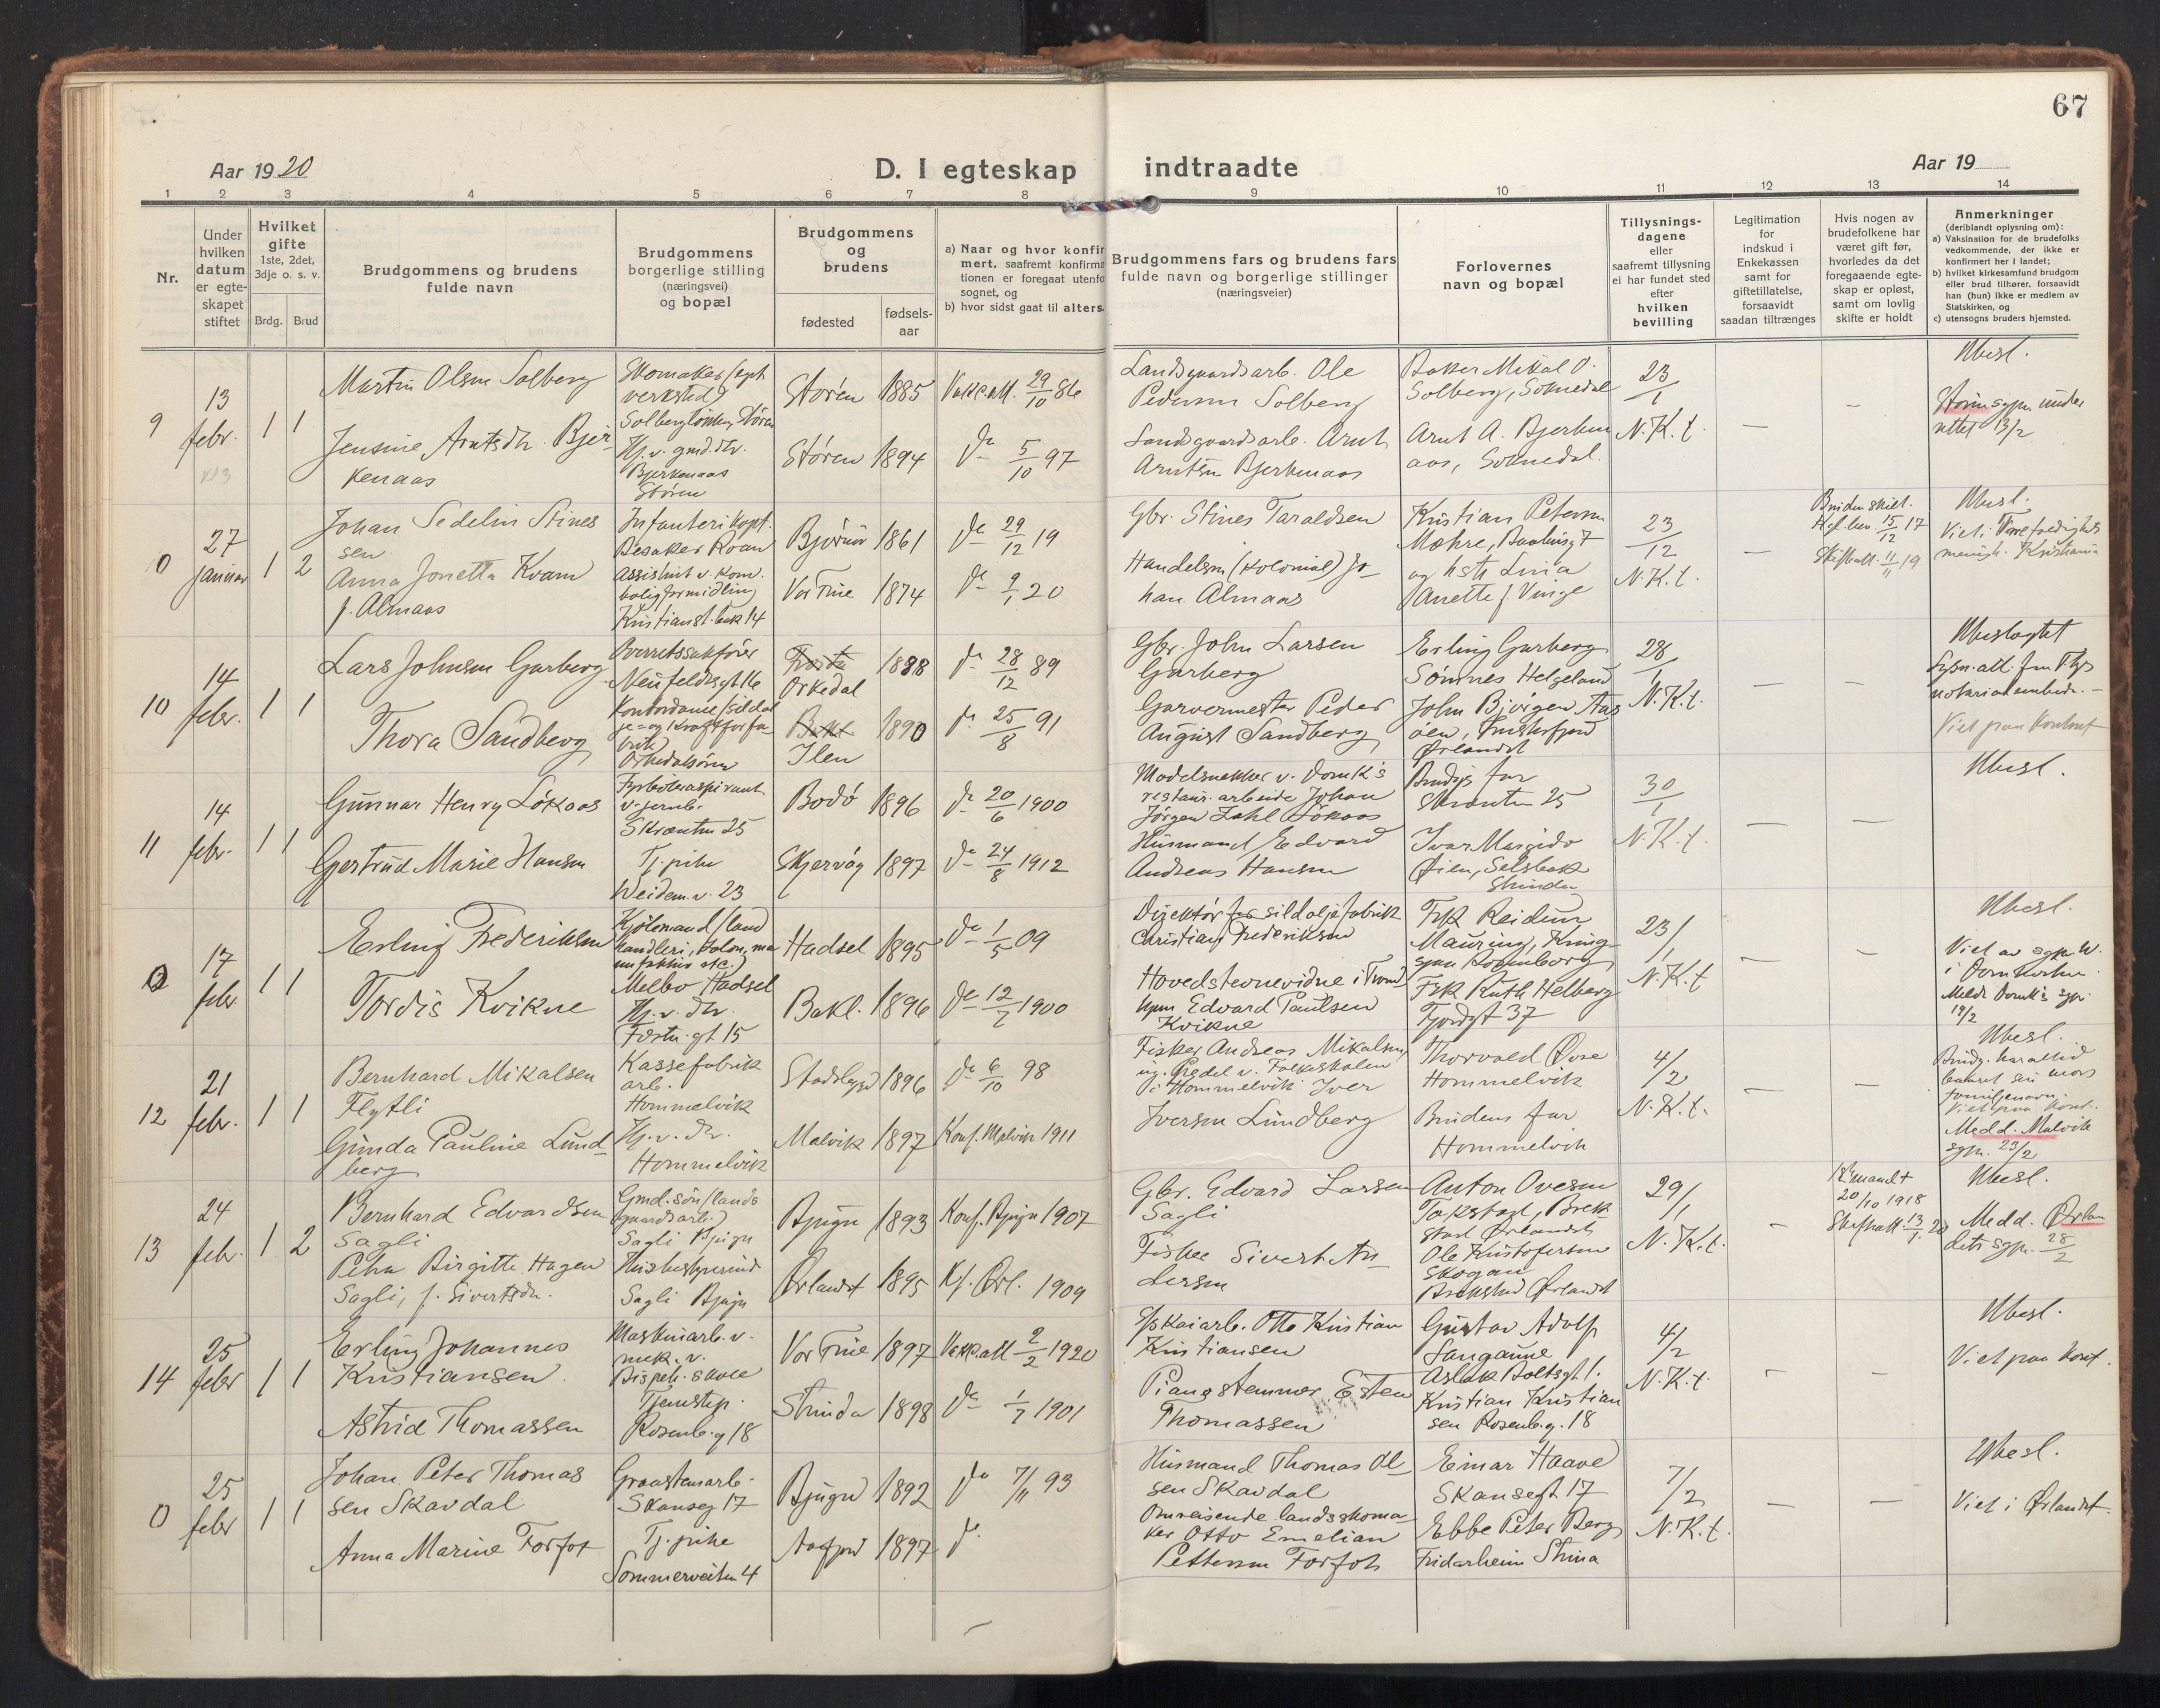 67
Aar 1920
D. I egteskap indtraadte
Aar 19
1 2 3 4 5 6 7 8 9 10 11 12 13 14
Nr.
Under
hvilken
datum
er egte-
skapet
stiftet
Hvilket
gifte
1ste, 2det,
3dje o. s. v.
Brdg. Brud
Brudgommens og brudens
fulde navn
Brudgommens
borgerlige stilling
(næringsvei)
og bopæl
Brudgommens
og
brudens
fødested
fødsels-
aar
a) Naar og hvor konfir
mert, saafremt konfirma
tionen er foregaat utenfo
sognet, og
b) hvor sidst gaat til alters.
Brudgommens fars og brudens fars
fulde navn og borgerlige stillinger
(næringsveier)
Forlovernes
navn og bopæl
Tillysnings-
dagene
eller
saafremt tillysning
ei har fundet sted
efter
hvilken
bevilling
Legitimation
for
indskud i
Enkekassen
samt for
giftetillatelse,
forsaavidt
saadan tiltrænges
Hvis nogen av
brudefolkene har
været gift før,
hvorledes da det
foregaaende egte-
skap er opløst,
samt om lovlig
skifte er holdt
Anmerkninger
(deriblandt oplysning om):
a) Vaksination for de brudefolks
vedkommende, der ikke er
konfirmert her i landet;
b) hvilket kirkesamfund brudgom
eller brud tilhører, forsaavidt
han (hun) ikke er medlem av
Statskirken, og
c) utensogns bruders hjemsted.
9
13
febr.
1 1
Martin Olsen Solberg
Jensine Arntsdtr. Bjer-
kenaas
Skomaker (egt
verksted)
Hj. v. gmd. dtr.
Bjerkenaas
Støren
Støren 1885
Støren 1894
Vakc.att. 29/10 86
do 5/10 97
Landsgaardsarb. Ole
Pedersen Solberg
Landsgaardsarb. Arnt
Arntsen Bjerkenaas
Baker Mikal O.
Solberg, Soknedal
Arnt A. Bjerken
aas, Soknedal.
23/1
N.K.t.
Ubesl.
Støren sgpr. under
rettet 13/2
0
27
januar
1 2
Johan Sedelin Stines
sen
Anna Jonetta Kvam
f. Almaas
Infanterikapt.
Besaker Roan
Assistent v. kom.
boligformidling
Bjørnør 1861
Vor Frue 1874
do 29/12 19
do 9/1 20
Gbr. Stines Taraldsen
Handelsm (kolonial) Jo-
han Almaas
Kristian Petersen
og hstr Lina
Anette f. Vinge
23/12
N.K.t.
Bruden skilt.
15/12 17
Skifteatt. 11/11 19
Ubesl.
10
14
febr.
1 1
Lars Johnsen Garberg
Thora Sandberg
Overretssakfører
Neufeldtsgt 16
Orkedalsøren
Orkedal 1888
Ilen 1890
do 28/12 89
do 25/8 91
Gbr. John Larsen
Garberg
Garvermester Peder
August Sandberg
Erling Garberg
Sømnes Helgeland
John Bjørgen Aas
Ørlandet
28/1
N.K.t.
Ubeslegtet
Viet paa kontoret
11
14
febr.
1 1
Gunnar Henry Løkaas
Gjertrud Marie Hansen
Fyrbøteraspirant
v. jernb.
Skrænten 25
Tj. pike
Weidem.v. 23
Bodø 1896
Skjervøy 1897
do 20/6 1900
do 24/8 1912
Modelsnekker v. domk's
restaur. arbeide Johan
Jørgen Zahl Løkaas
Husmand Edvard
Andreas Hansen
Brudgs far
Skrænten 25
Ivar Margido
Øien, Selsbak
Strinden
30/1
N.K.t.
Ubesl.
17
febr
1 1
Erling Frederiksen
Tordis Kvikne
Melbo Hadsel
Hj. v. dtr.
Hadsel 1895
Bakl. 1896
do 1/5 09
do 12/7 1900
Direktør for sildoljefabrik
Christian Frederiksen
Hovedstevnevidne i Trond
hjem Edvard Paulsen
Kvikne
Frk Reidun
Frk Ruth Helberg
Fjordgt 37
23/1
N.K.t
Ubesl.
Viet av sgpr. W.
i Domkirken
Meldt Domk's sgpr.
19/2
12
21
febr.
1 1
Bernhard Mikalsen
Flytli
Gunda Pauline Lund-
berg
Kassefabrik
arb.
Hommelvik
Hj. v. Dtr.
Hommelvik
Stadsbygd 1896
Malvik 1897
do 6/10 98
Konf. Malvik 1911
Fisker Andreas Mikalsen
og Pedel v. Folkeskolen
i Hommelvik Iver
Iversen Lundberg
Thorvald Øvre
Hommelvik
Brudens far
Hommelvik
4/2
N.K.t.
Ubesl.
Brudg. har altid
baaret sin mors
familjenavn.
Viet paa kont.
Medd. Malvik
sgpr. 23/2
13
24
febr.
1 2
Bernhard Edvardsen
Sagli
Petra Birgitte Hagen
Sagli, f. Sivertsdtr.
Gmd. søn (lands
gaardsarb.)
Sagli Bjugn
Husbestyrerinde
Sagli Bjugn
Bjugn 1893
Ørlandet 1895
Konf. Bjugn 1907
Kf. Ørl. 1909
Gbr. Edvard Larsen
Sagli
Fisker Sivert An-
dersen
Anton Ovesen
stad Ørlandet
Ole Kristofersen
Skogan
Brekstad Ørlandet
29/1
N.K.t.
1ste mand +
20/10 1918
Ubesl.
Medd. Ørlan
dets sgpr. 28/2
14
25
febr
1 1
Erling Johannes
Kristiansen
Astrid Thomassen
Maskinarb. v.
mek. v.
Bispeh. skole
Tjenstep.
Rosenb.g 18
Vor Frue 1897
Strinda 1898
Vakc.att 2/2 1920
do 1/7 1901
Otto Kristian
Kristiansen
Pianostemmer Esten
Thomassen
Gustav Adolf
Langaune
Aslak Boltsgt 1.
Kristian Kristian
sen Rosenb.g. 18
4/2
N.K.t.
Ubesl.
Viet paa kont.
0
25
febr
1 1
Johan Peter Thomas
sen Skavdal
Anna Marine Forfot
Graastensarb.
Skanseg 17
Tj. pike
Sommerveiten 4
Bjugn 1892
Aafjord 1897
do 7/11 93
do
Husmand Thomas Ol-
sen Skavdal
Omreisende landsskoma-
ker Otto Emelian
Pettersen Forfot
Einar Haave
Skansegt 17
Ebbe Peter Berg
7/2
N.K.t.
Ubesl.
Viet i Ørlandet.